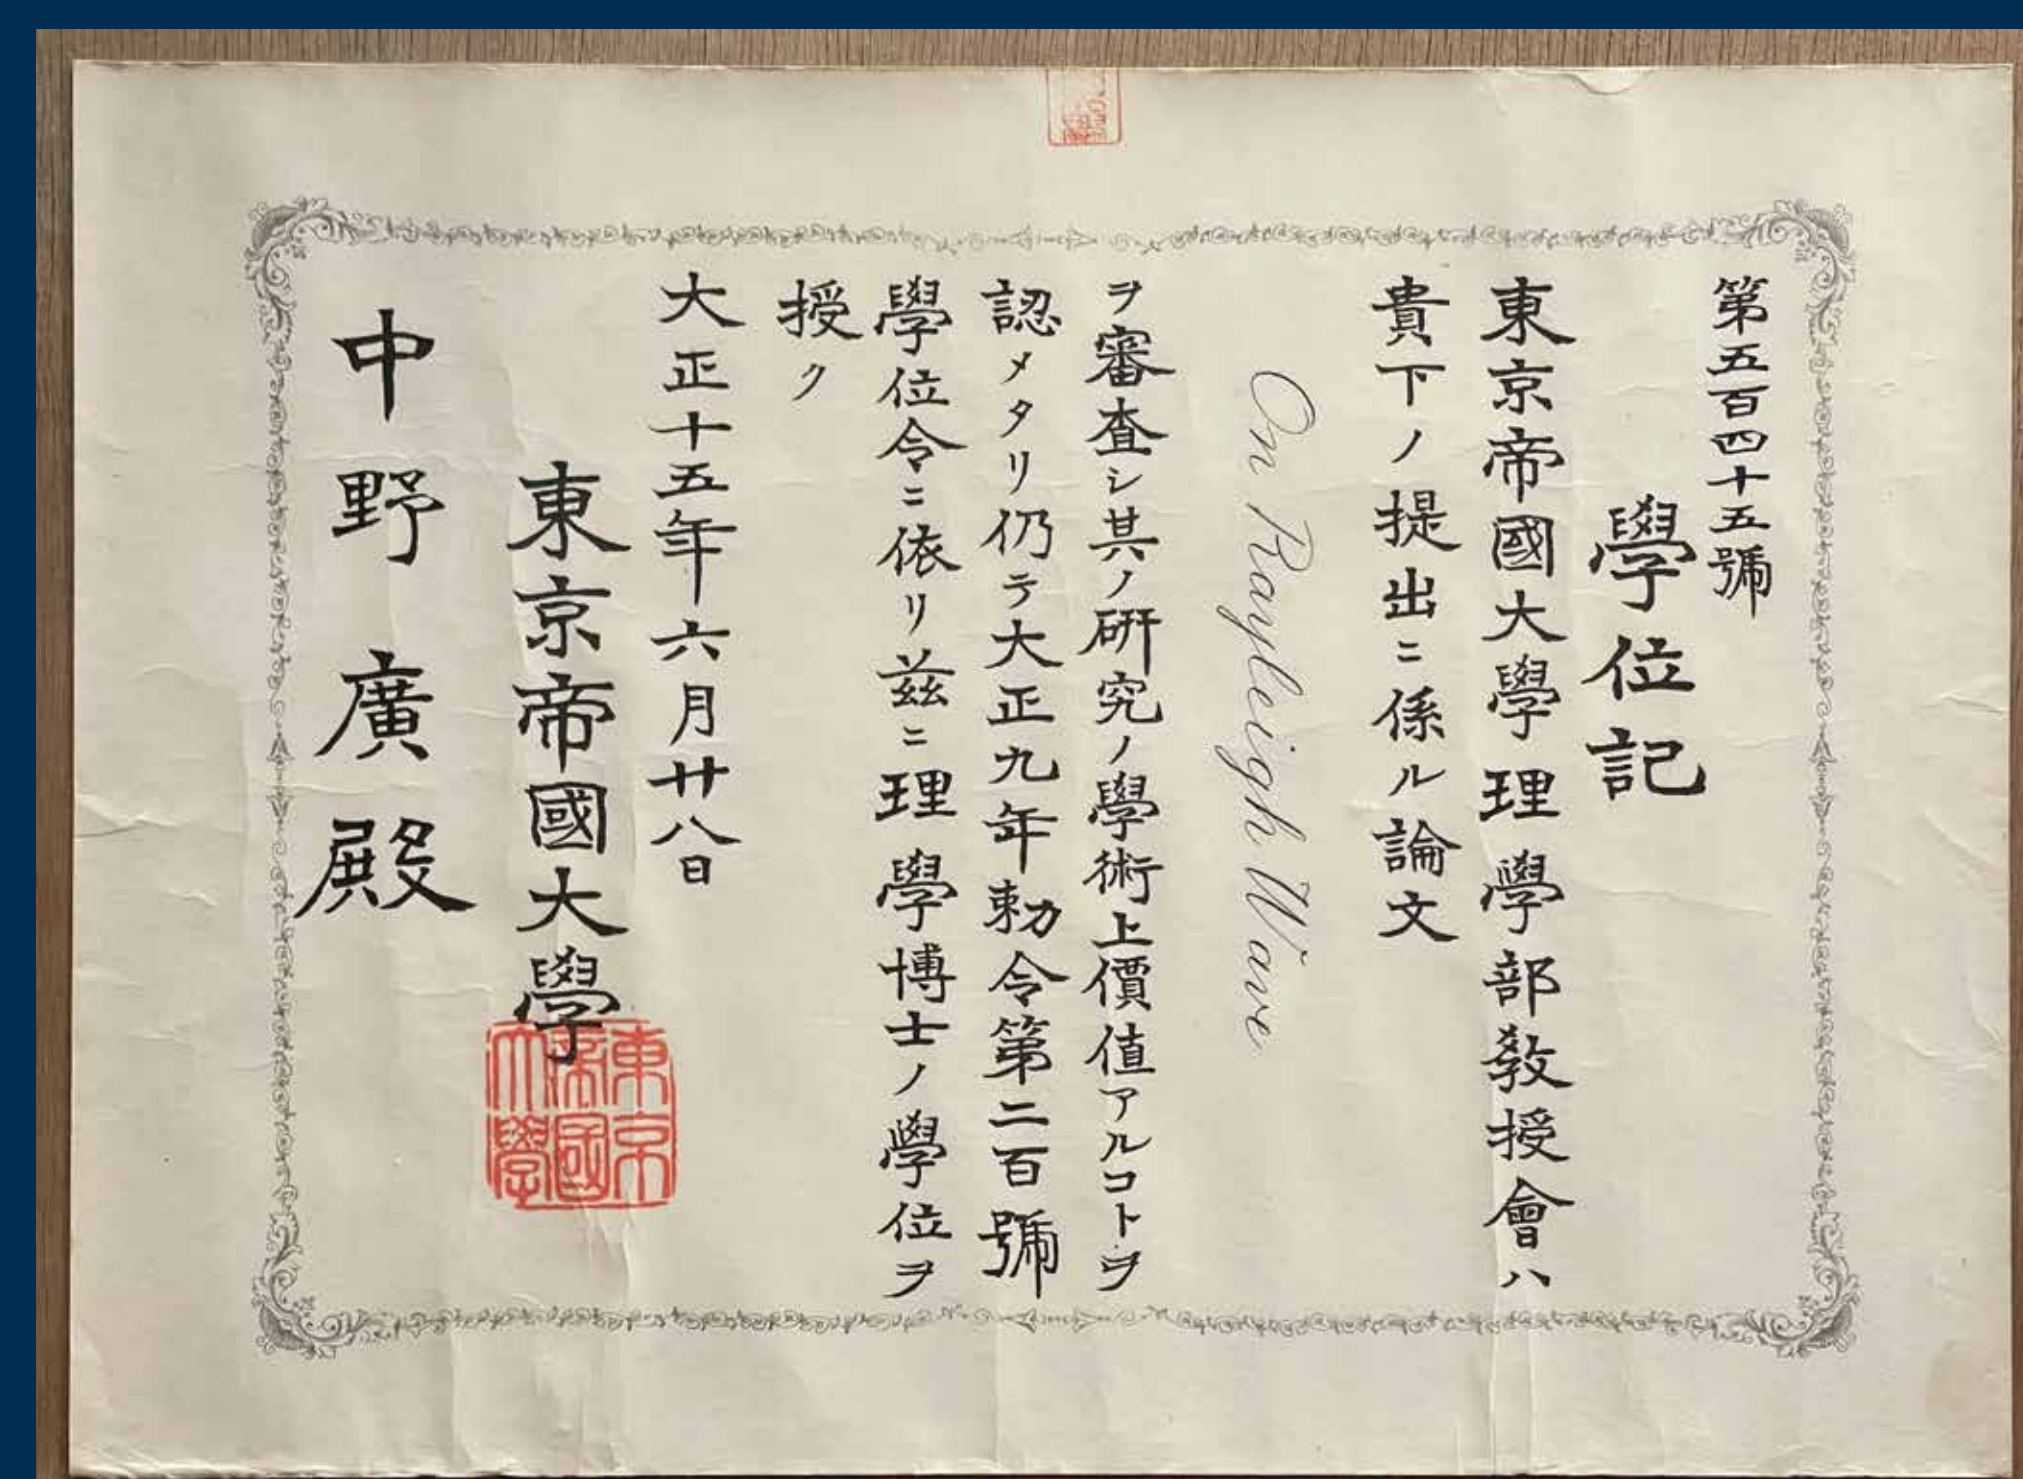 第五百四十五號
學位記
東京帝國大學理學部教授會ハ
貴下ノ提出ニ係ル論文
On Rayleigh Wave
ヲ審査シ其ノ研究ノ學術上價値アルコトヲ
認メタリ仍テ大正九年勅令第二百號
學位令ニ依リ茲ニ理學博士ノ學位ヲ
授ク
大正十五年六月廿八日
東京帝國大學
東京
帝國
大學
中野廣殿